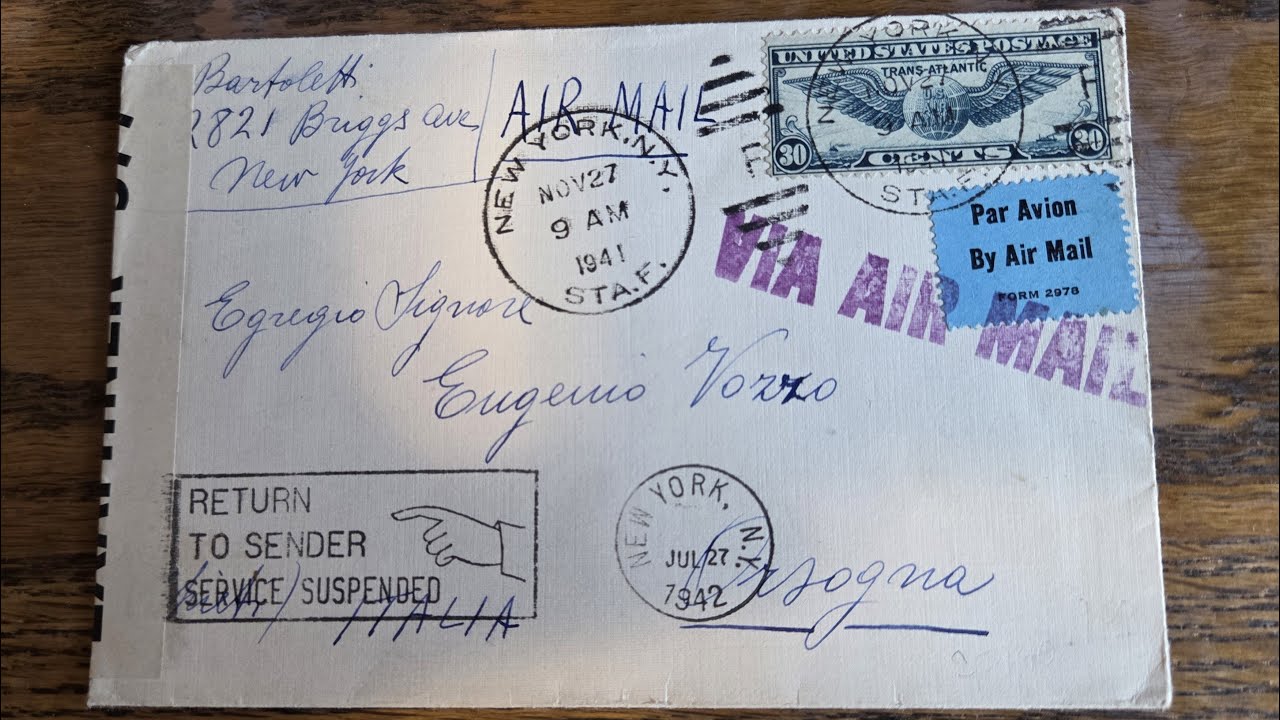 Bartoletti
2821 Briggs ave
New York
AIR MAIL
NEW YORK, N.Y.
NOV 27
9 AM
1941
STA. F.
NEW YORK
NOV 27
9 AM
STA. F.
UNITED STATES POSTAGE
TRANS-ATLANTIC
30 CENTS 30
Par Avion
By Air Mail
FORM 2978
VIA AIR MAIL
Egregio Signore
Eugenio Vozzo
RETURN
TO SENDER
SERVICE SUSPENDED
NEW YORK, N.Y.
JUL 27
1942
Orsogna
ITALIA